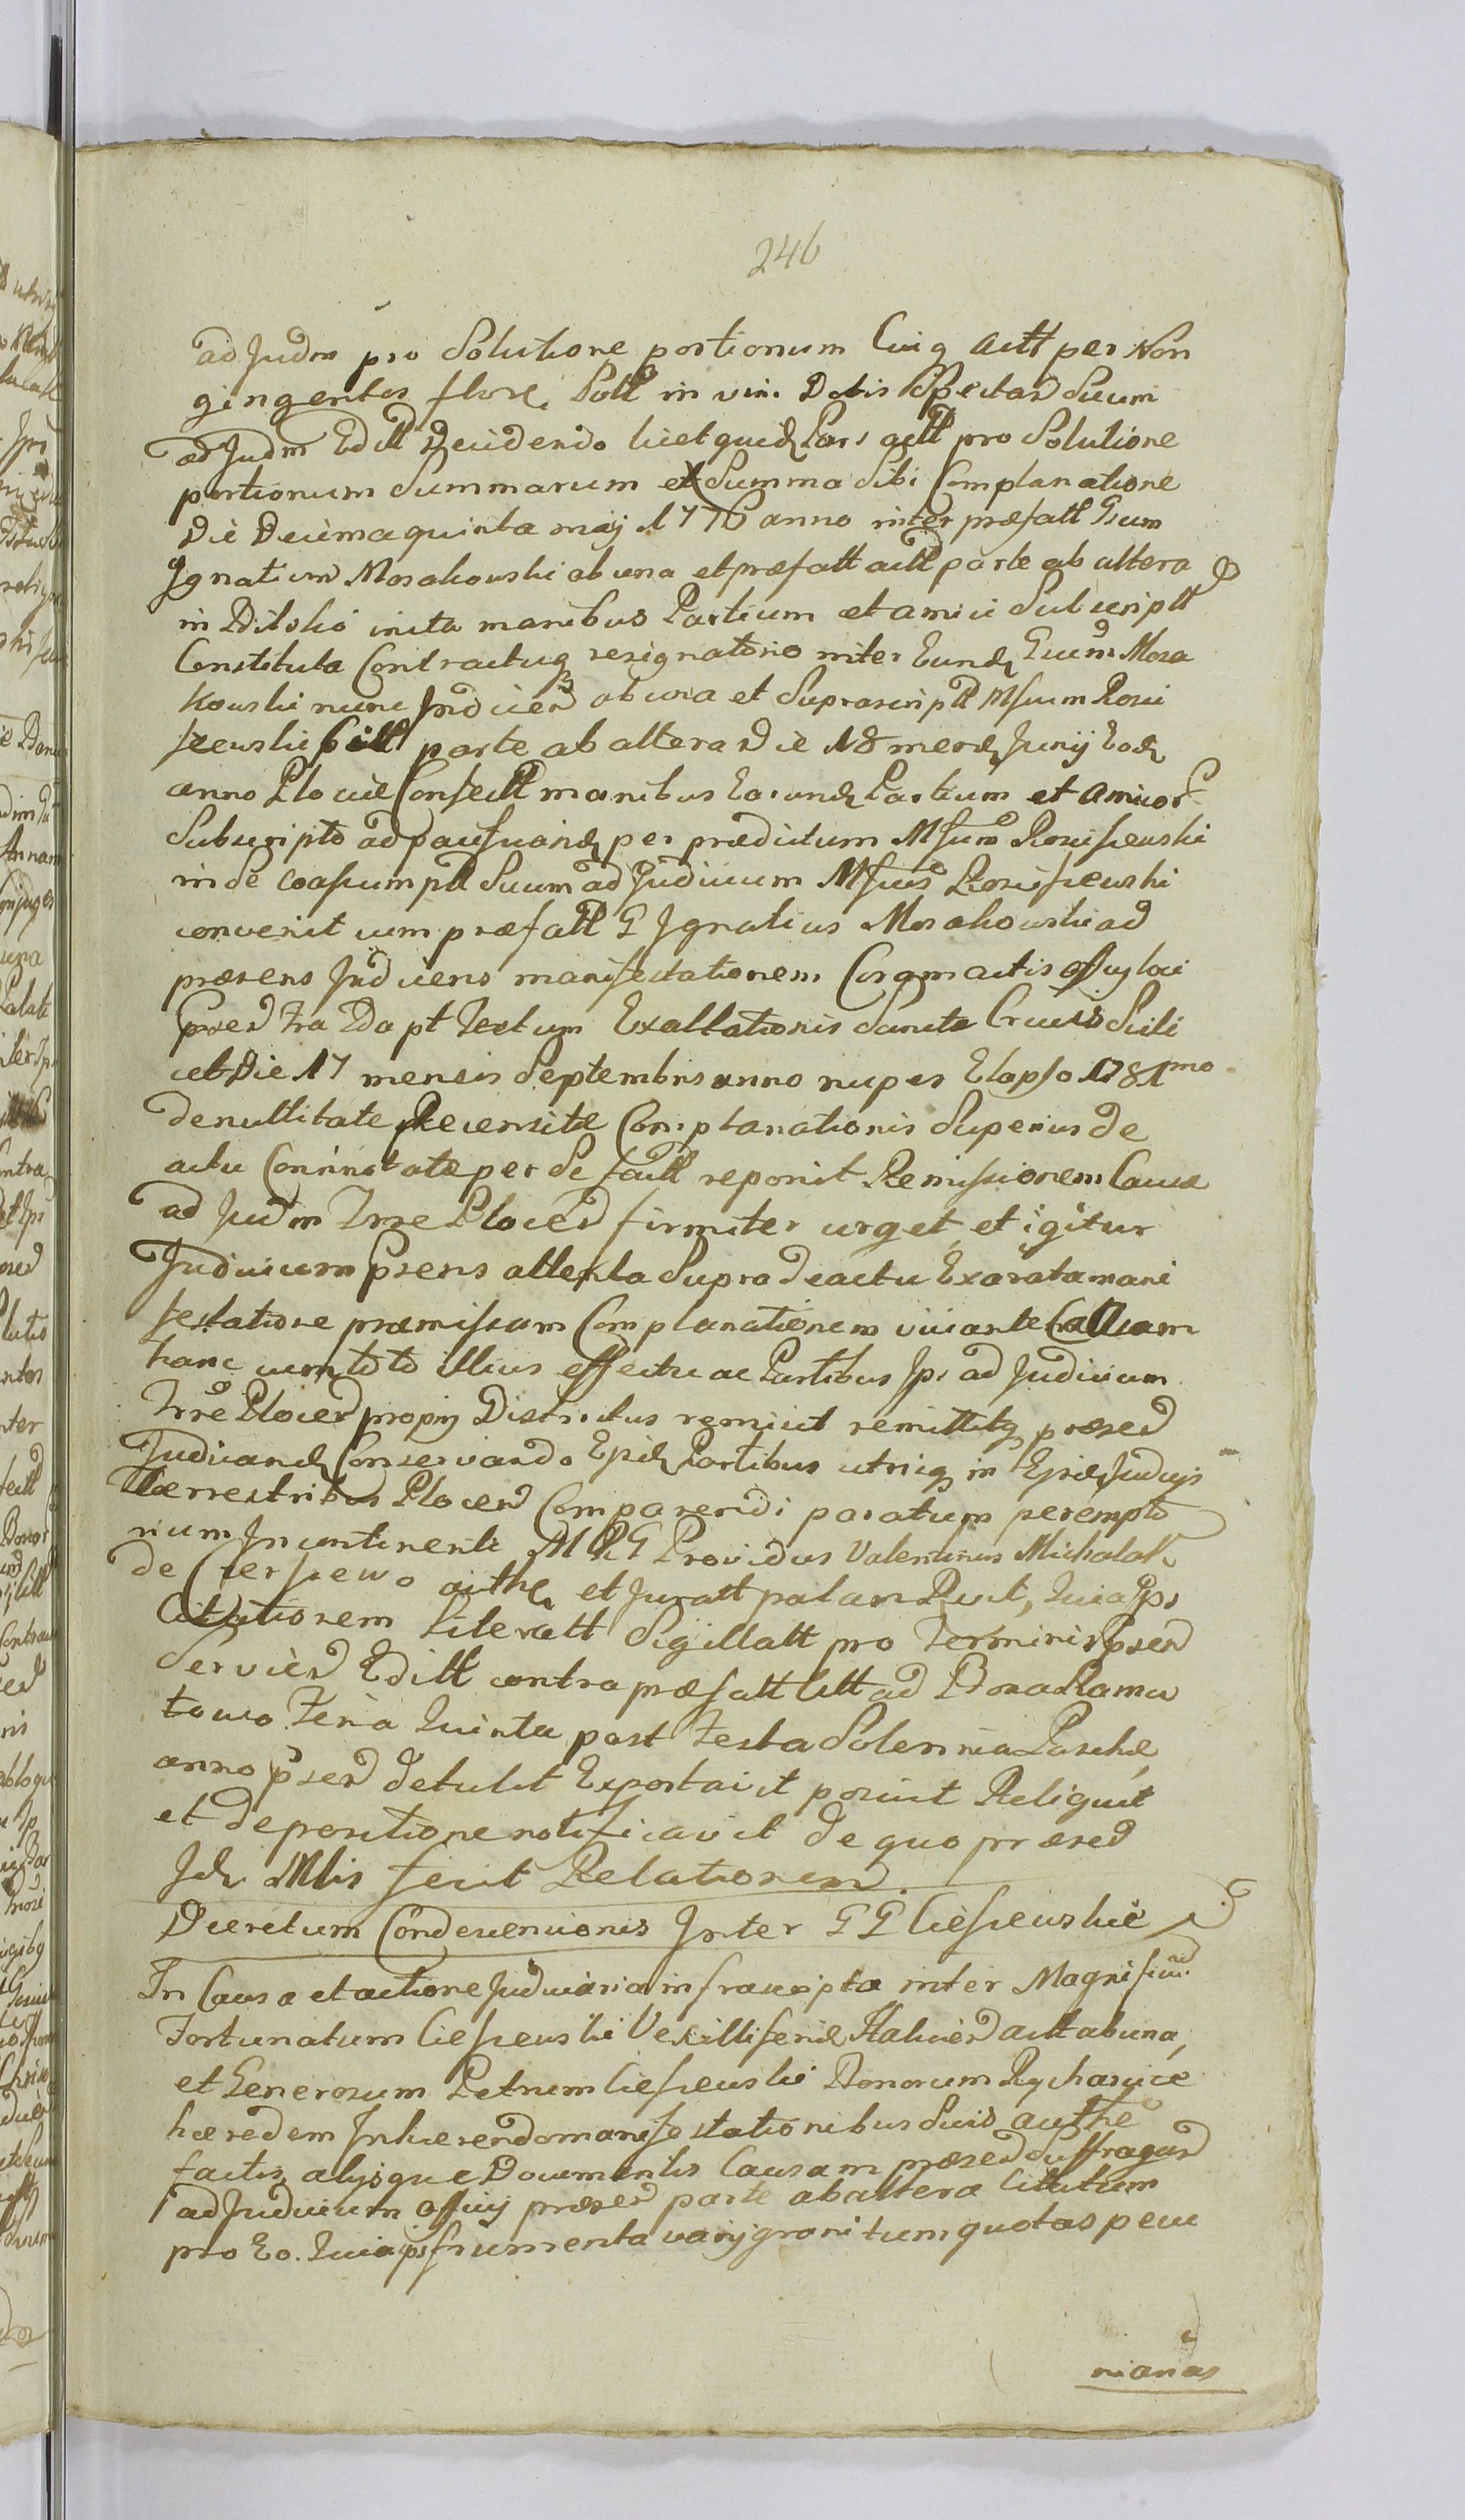 246
ad Judm pro Solutione portionum Cuiq actt per Non
gingentos flor. Poll in vim Dotis Spectan Suum
ad Judm Edltt Decidendo licet quid Pars actt pro Solutione
portionum Summarum et Summa Sibi Complanatione
Die Decima quinta maij 1776 anno inter præfatt Gsum
Ignatium Mosakowski ab una et præfatt actt parte ab altera
in Bilsko inita manibus Partium et amici Subscriptt
Constituta Contractuq resignatorio inter Eund Gsum Mosa
kowski nunc Inducen ab una et Suprascriptt Msum Rosci
szewski Citt parte ab altera Die 18 mens Junij Eod
anno Plociæ Confectt manibus Earund Partium et amicor
Subscripto ad parte per prædictum Msum Rosciszewski
in se coassumptt Suum ad Judicium Msus Rosciszewski
convenit cum præfatt G Ignatius Mosakowski ad
præsens Inducens manifestationem Coram actis Officij loci
præsen fra 2da pt festum Exaltationis Sanctæ Crucis Scili
cet Die 17 mensis Septembris anno nuper Elapso 1781mo
de nullitate Recensitæ Complanationis Superius de
actu Connotatæ per Se factt reponit Remissionem Causæ
ad Judm Trre Plocen firmiter urget, et igitur
Judicium Psens attenta Supra de actu Exarata mani
festatione præmissam Complanationem viciante Causam
hanc cum toto illius effectu ac Partibus Ips ad Judicium
Trre Plocen propij Districtus remisit remittitq præsen
Judicand Conservando Epid Partibus utriq in Epis Judcijs
Terrestribus Plocen Comparendi paratum perempto
rium In continenti M R G Providus Valentinus Michalak
de Cierszewo auth et Juratt palam Rvit, Quia Ips
Citationem Literatt Sigillatt pro Terminis psen
Servien Editt contra præfatt Citt ad Bona Rama
towo Feria Quinta post Festa Solennia Paschæ
anno psen detulit Exportavit posuit Reliquit
et de positione notificavit de quo præsen
Id Mlis fecit Relationem.
Decretum Condescensionis Inter GG Cieszewskie
In Causa et actione Judiciaria infrascripta inter Magnificum
Fortunatum Ciesszewski Vexilliferid Halicien actt ab una,
et Generosum Petrum Ciesszewski Bonorum Rychacice
hæredem Inhærendo manifestationibus Suis authe
factis, alijsque Documentis Causam præsen Suffragan
ad Judicium Officij præsen parte ab altera Citatum
pro Eo. Quia ips frumenta varij grani tum quotas pecu
nianas